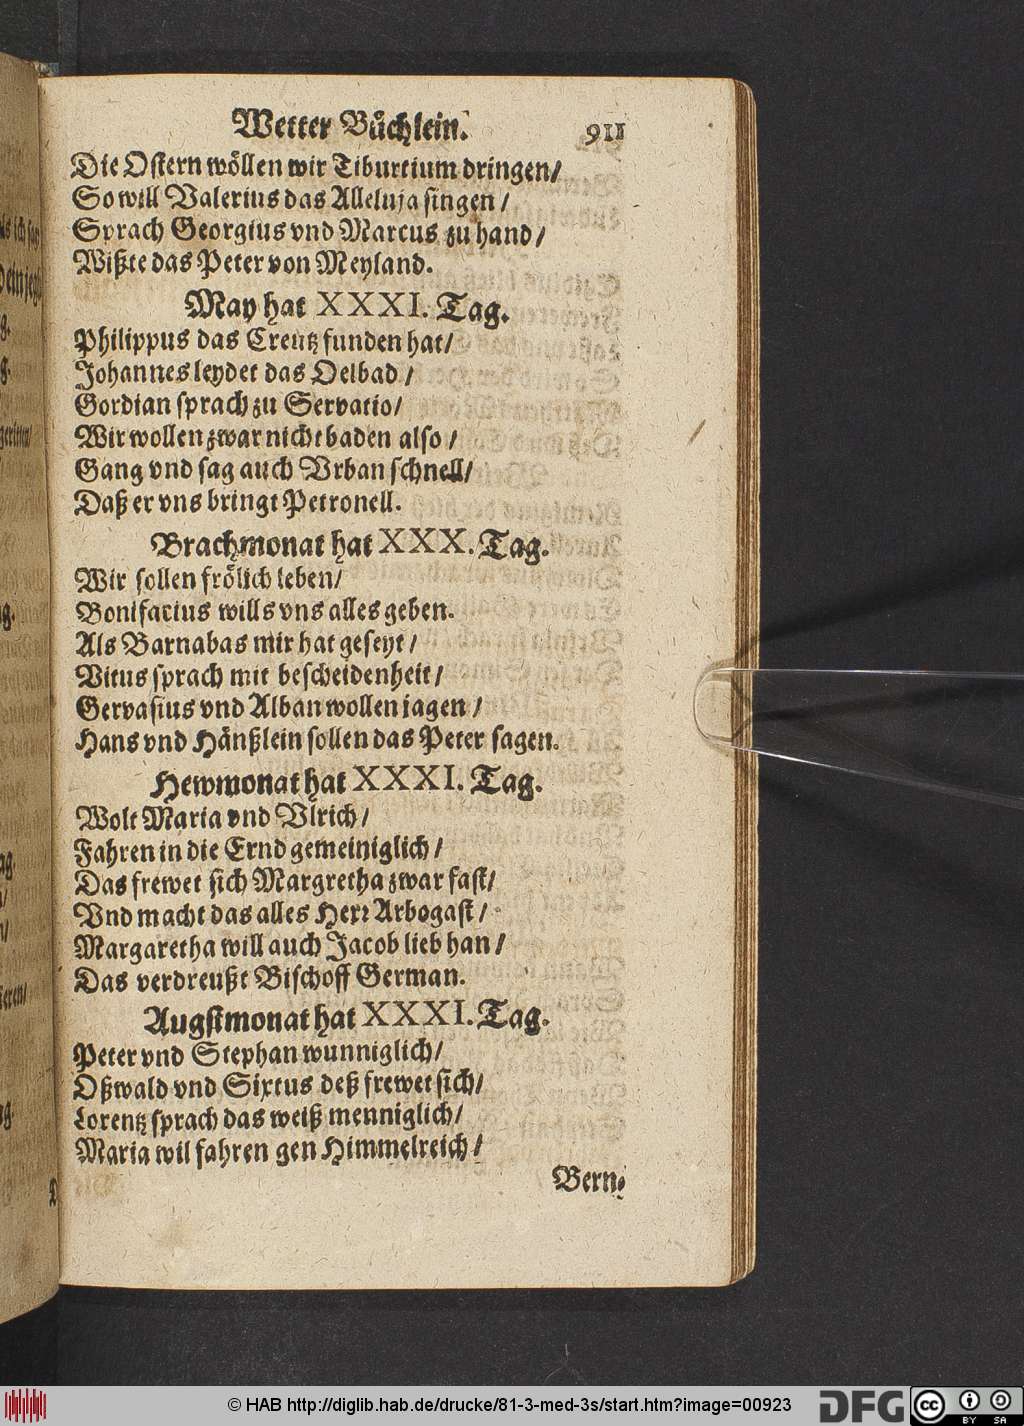 Wetter Bůchlein. 911
Die Ostern wöllen wir Tiburtium dringen/
So will Valerius das Alleluja singen/
Sprach Georgius vnd Marcus zu hand/
Wißte das Peter von Meyland.
May hat XXXI. Tag.
Philippus das Creutz funden hat/
Johannes leydet das Oelbad/
Gordian sprach zu Servatio/
Wir wollen zwar nicht baden also/
Gang vnd sag auch Vrban schnell/
Daß er vns bringt Petronell.
Brachmonat hat XXX. Tag.
Wir sollen frölich leben/
Bonifacius wills vns alles geben.
Als Barnabas mir hat geseyt/
Vitus sprach mit bescheidenheit/
Gervasius vnd Alban wollen jagen/
Hans vnd Hänßlein sollen das Peter sagen.
Hewmonat hat XXXI. Tag.
Wolt Maria vnd Vlrich/
Fahren in die Ernd gemeiniglich/
Das frewet sich Margretha zwar fast/
Vnd macht das alles Herr Arbogast/
Margaretha will auch Jacob lieb han/
Das verdreußt Bischoff German.
Augstmonat hat XXXI. Tag.
Peter vnd Stephan wunniglich/
Oßwald vnd Sixtus deß frewet sich/
Lorentz sprach das weiß menniglich/
Maria wil fahren gen Himmelreich/
Bern-
© HAB http://diglib.hab.de/drucke/81-3-med-3s/start.htm?image=00923
DFG
cc BY SA